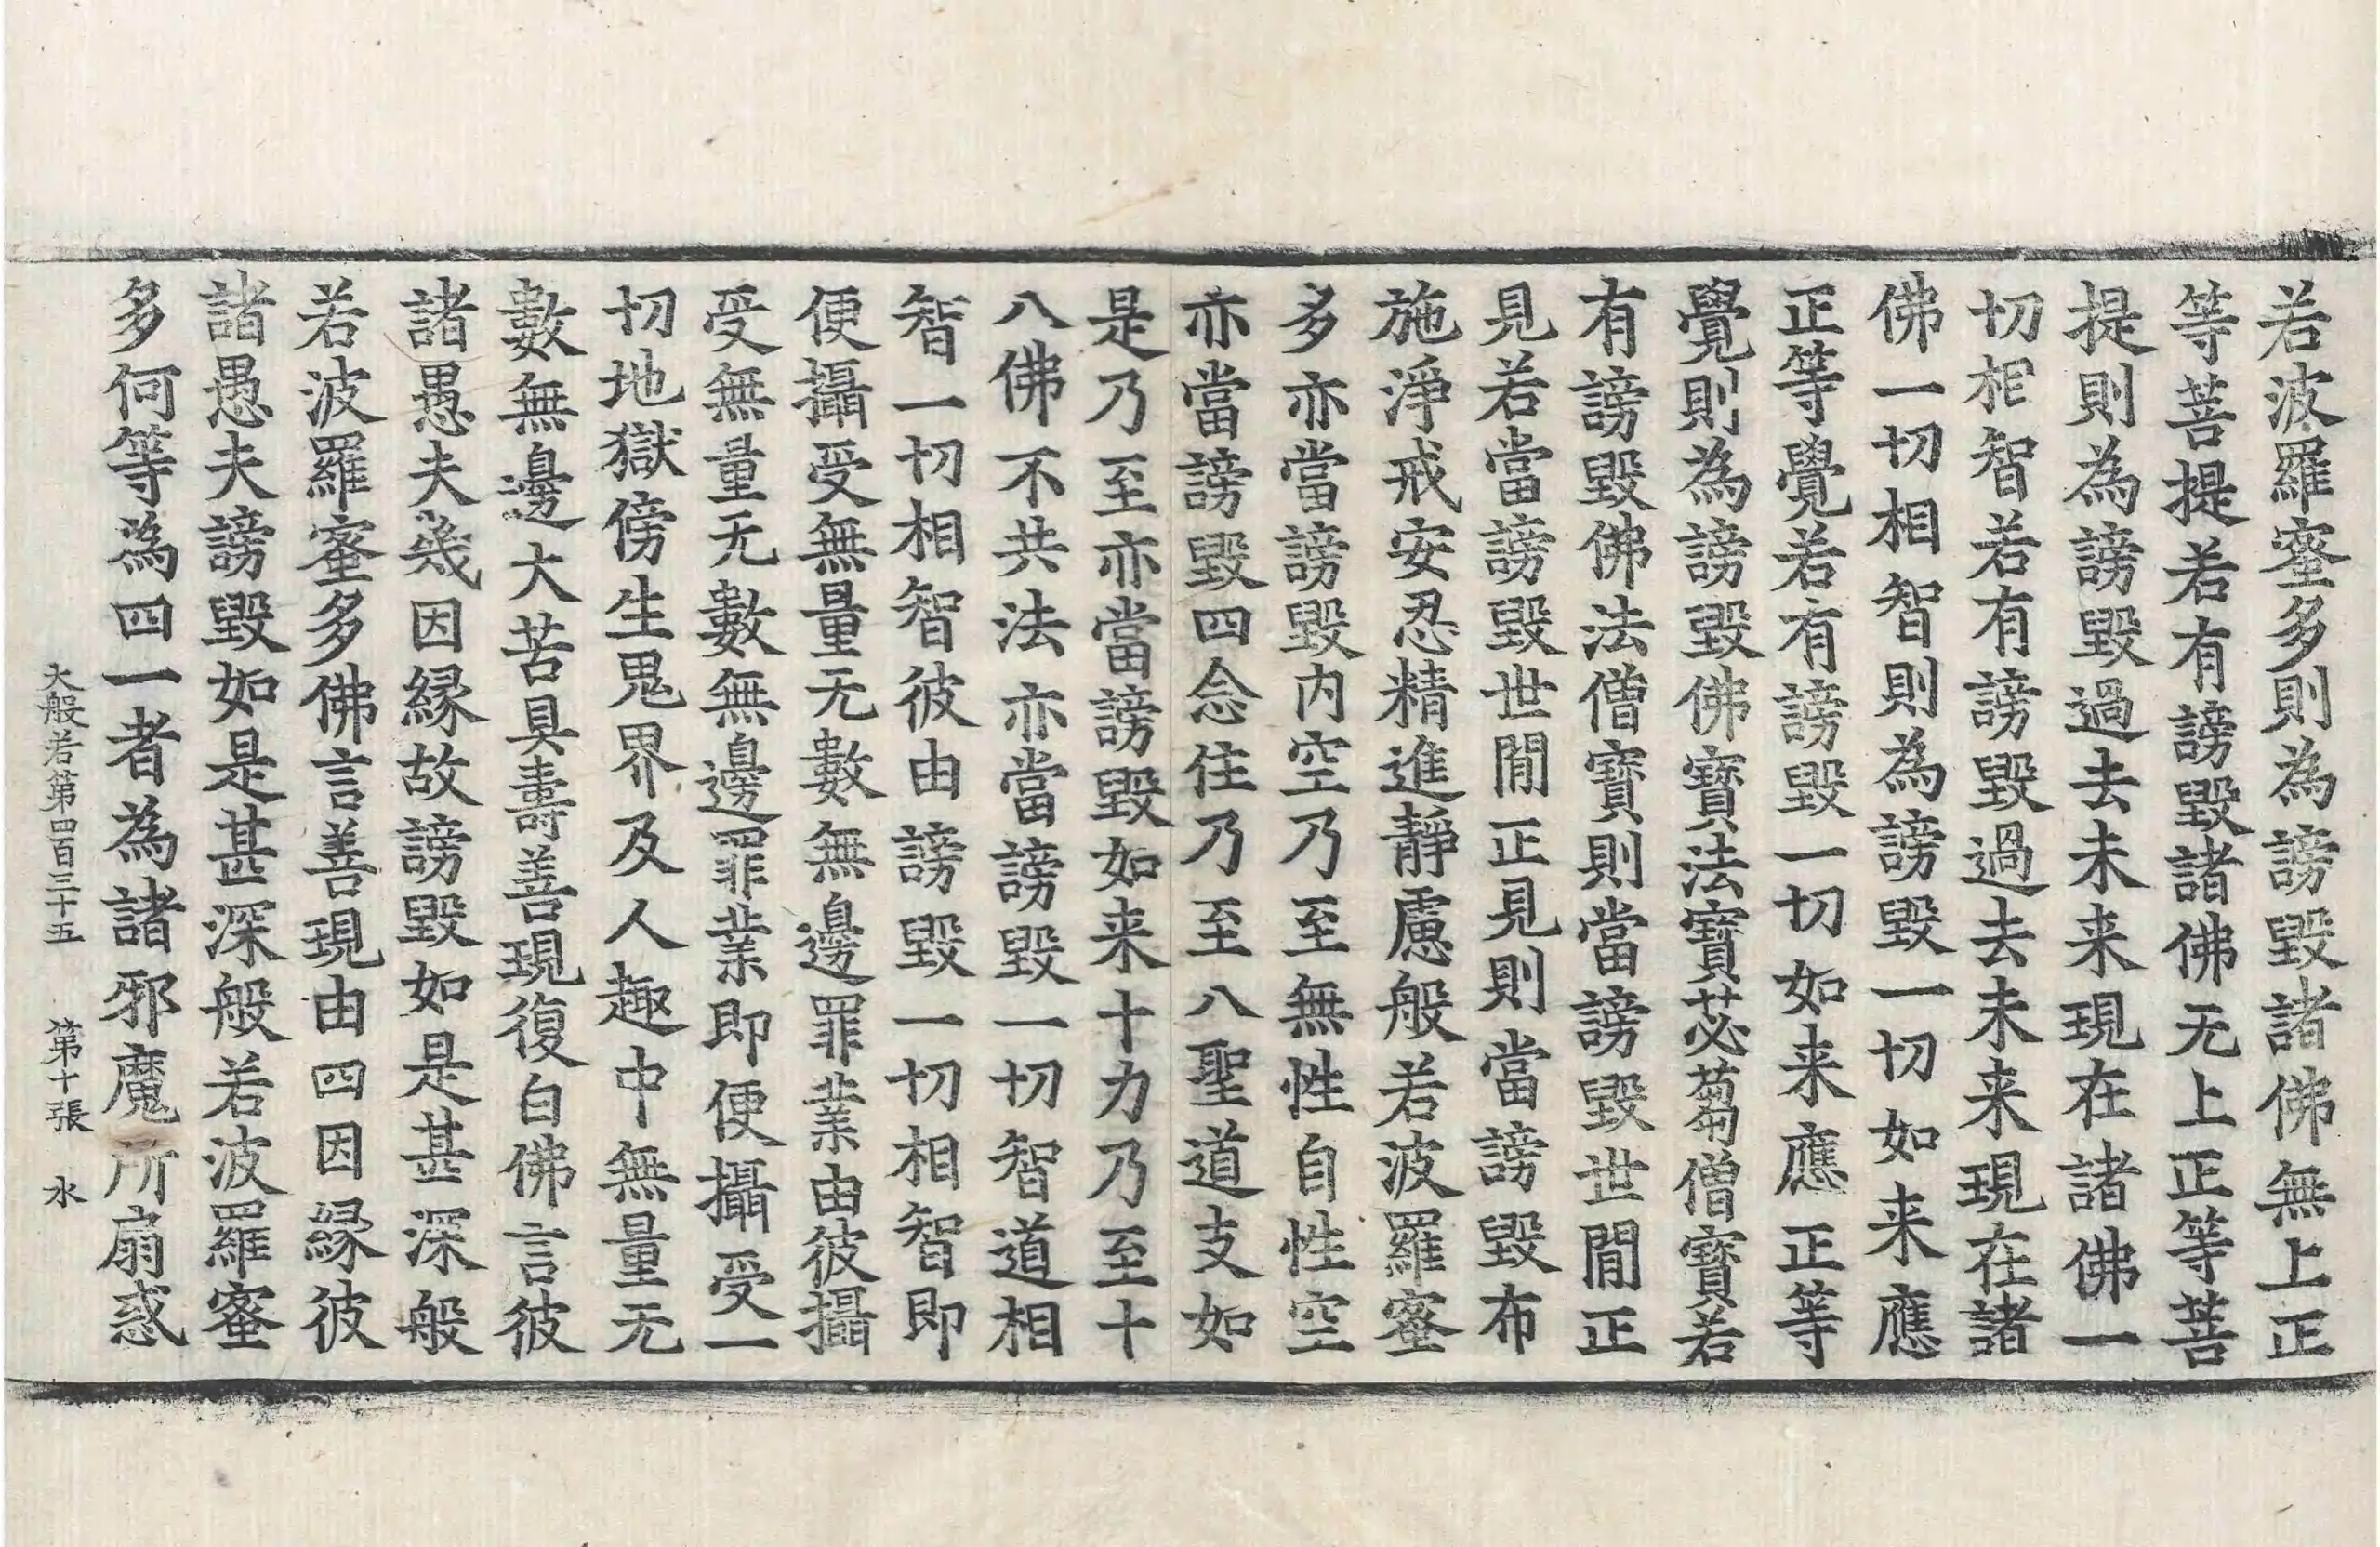 若波羅蜜多則為謗毀諸佛無上正
等菩提若有謗毀諸佛无上正等菩
提則為謗毀過去未来現在諸佛一
切相智若有謗毀過去未来現在諸
佛一切相智則為謗毀一切如来應
正等覺若有謗毀一切如来應正等
覺則為謗毀佛寶法寶苾蒭僧寶若
有謗毀佛法僧寶則當謗毀世閒正
見若當謗毀世閒正見則當謗毀布
施淨戒安忍精進靜慮般若波羅蜜
多亦當謗毀内空乃至無性自性空
亦當謗毀四念住乃至八聖道支如
是乃至亦當謗毀如来十力乃至十
八佛不共法亦當謗毀一切智道相
智一切相智彼由謗毀一切相智即
便攝受無量无數無邊罪業由彼攝
受無量无數無邊罪業即便攝受一
切地獄傍生鬼界及人趣中無量无
數無邊大苦具壽善現復白佛言彼
諸愚夫幾因緣故謗毀如是甚深般
若波羅蜜多佛言善現由四因緣彼
諸愚夫謗毀如是甚深般若波羅蜜
多何等為四一者為諸邪魔所扇惑
大般若第四百三十五 第十張 水